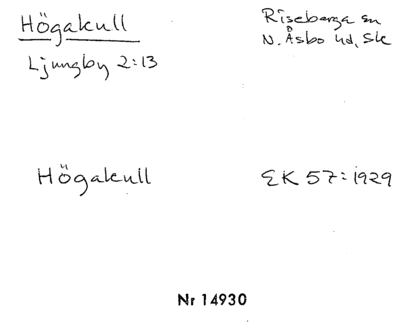 Högakull
Riseberga sn
Ljungby 2:13
N. Åsbo hd, Sk
Högakull
EK 57:1929
Nr 14930